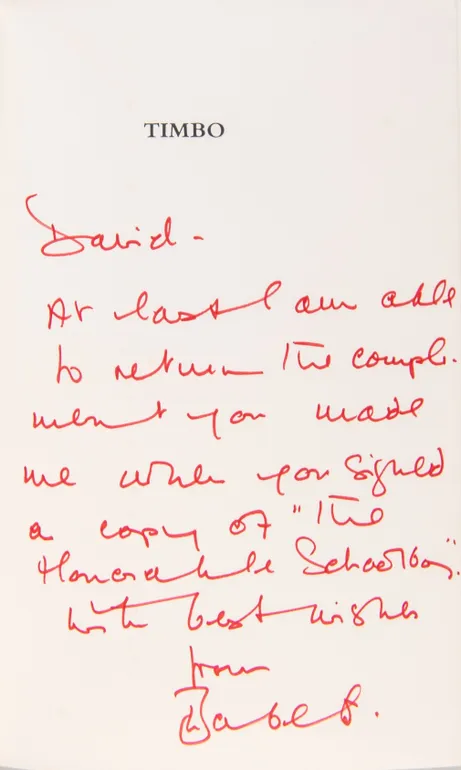 TIMBO
David -
At last I am able
to return the compli-
ment you made
me when you signed
a copy of "The
Honorable Schoolboy".
With best wishes
from